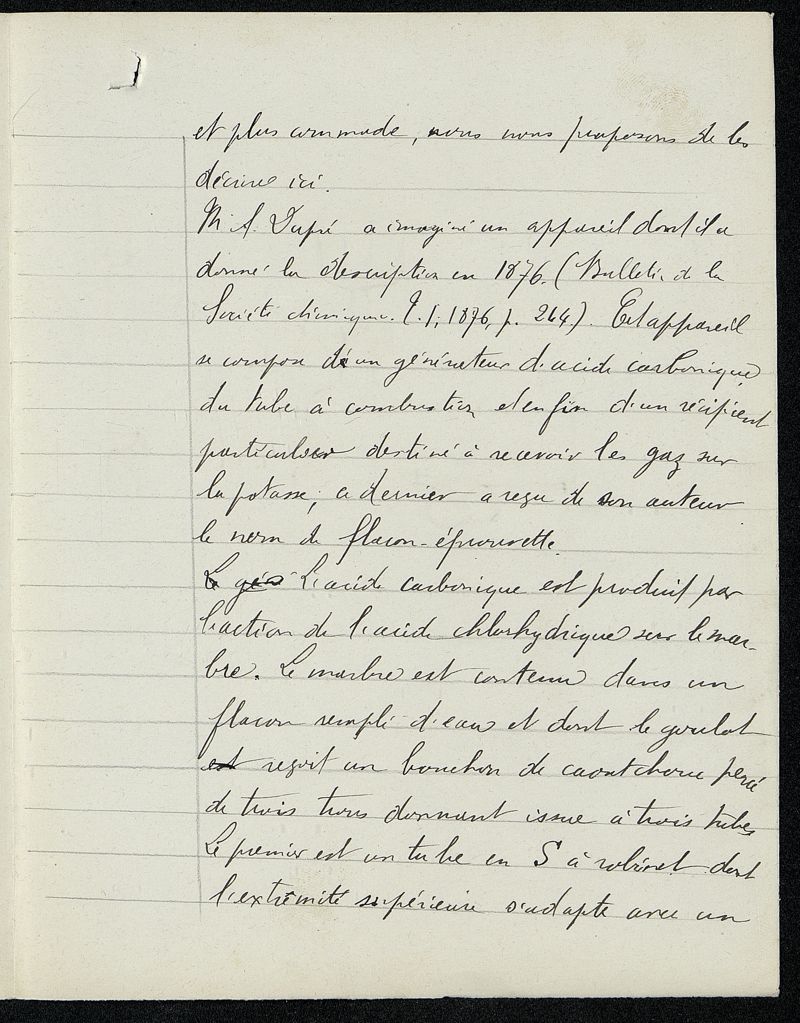 et plus commode, nous nous proposons de les
décrire ici.
M. A. Dupré a imaginé un appareil dont il a
donné la description en 1876. (Bulletin de la
Société chimique. T. I, 1876, p. 264.). Cet appareil
se compose d'un générateur d'acide carbonique,
du tube à combustion et enfin d'un récipient
particulier destiné à recevoir les gaz sur
la potasse; ce dernier a reçu de son auteur
le nom de flacon-éprouvette.
Le gén L'acide carbonique est produit par
l'action de l'acide chlorhydrique sur le mar-
bre. Le marbre est contenu dans un
flacon rempli d'eau et dont le goulot
est reçoit un bouchon de caoutchouc percé
de trois trous donnant issue à trois tubes
Le premier est un tube en S à robinet dont
l'extrêmité supérieure s'adapte avec un